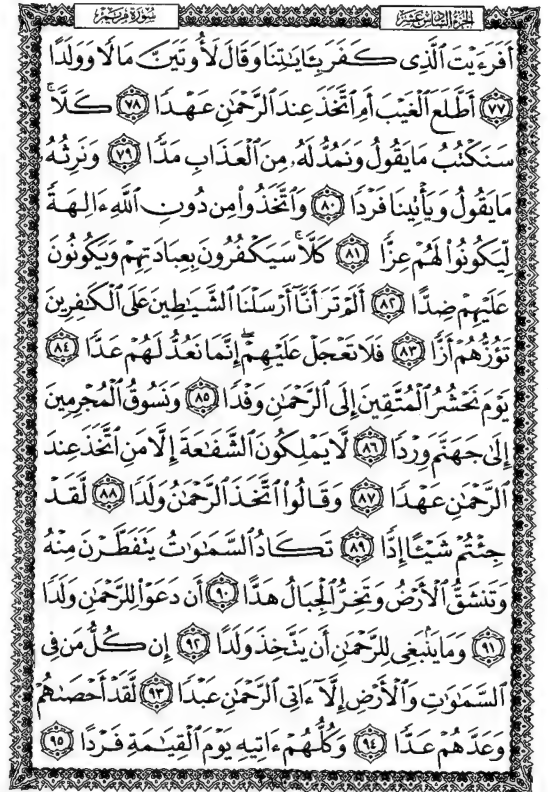 سورة مريم
الجزء السادس عشر
أَفَرَءَيْتَ ٱلَّذِى كَفَرَ بِـَٔايَـٰتِنَا وَقَالَ لَأُوتَيَنَّ مَالًا وَوَلَدًا
٧٧ أَطَّلَعَ ٱلْغَيْبَ أَمِ ٱتَّخَذَ عِندَ ٱلرَّحْمَـٰنِ عَهْدًا ٧٨ كَلَّا ۚ
سَنَكْتُبُ مَا يَقُولُ وَنَمُدُّ لَهُۥ مِنَ ٱلْعَذَابِ مَدًّا ٧٩ وَنَرِثُهُۥ
مَا يَقُولُ وَيَأْتِينَا فَرْدًا ٨٠ وَٱتَّخَذُوا۟ مِن دُونِ ٱللَّهِ ءَالِهَةً
لِّيَكُونُوا۟ لَهُمْ عِزًّا ٨١ كَلَّا ۚ سَيَكْفُرُونَ بِعِبَادَتِهِمْ وَيَكُونُونَ
عَلَيْهِمْ ضِدًّا ٨٢ أَلَمْ تَرَ أَنَّآ أَرْسَلْنَا ٱلشَّيَـٰطِينَ عَلَى ٱلْكَـٰفِرِينَ
تَؤُزُّهُمْ أَزًّا ٨٣ فَلَا تَعْجَلْ عَلَيْهِمْ ۖ إِنَّمَا نَعُدُّ لَهُمْ عَدًّا ٨٤
يَوْمَ نَحْشُرُ ٱلْمُتَّقِينَ إِلَى ٱلرَّحْمَـٰنِ وَفْدًا ٨٥ وَنَسُوقُ ٱلْمُجْرِمِينَ
إِلَىٰ جَهَنَّمَ وِرْدًا ٨٦ لَّا يَمْلِكُونَ ٱلشَّفَـٰعَةَ إِلَّا مَنِ ٱتَّخَذَ عِندَ
ٱلرَّحْمَـٰنِ عَهْدًا ٨٧ وَقَالُوا۟ ٱتَّخَذَ ٱلرَّحْمَـٰنُ وَلَدًا ٨٨ لَّقَدْ
جِئْتُمْ شَيْـًٔا إِدًّا ٨٩ تَكَادُ ٱلسَّمَـٰوَٰتُ يَتَفَطَّرْنَ مِنْهُ
وَتَنشَقُّ ٱلْأَرْضُ وَتَخِرُّ ٱلْجِبَالُ هَدًّا ٩٠ أَن دَعَوْا۟ لِلرَّحْمَـٰنِ وَلَدًا
٩١ وَمَا يَنۢبَغِى لِلرَّحْمَـٰنِ أَن يَتَّخِذَ وَلَدًا ٩٢ إِن كُلُّ مَن فِى
ٱلسَّمَـٰوَٰتِ وَٱلْأَرْضِ إِلَّآ ءَاتِى ٱلرَّحْمَـٰنِ عَبْدًا ٩٣ لَّقَدْ أَحْصَىٰهُمْ
وَعَدَّهُمْ عَدًّا ٩٤ وَكُلُّهُمْ ءَاتِيهِ يَوْمَ ٱلْقِيَـٰمَةِ فَرْدًا ٩٥